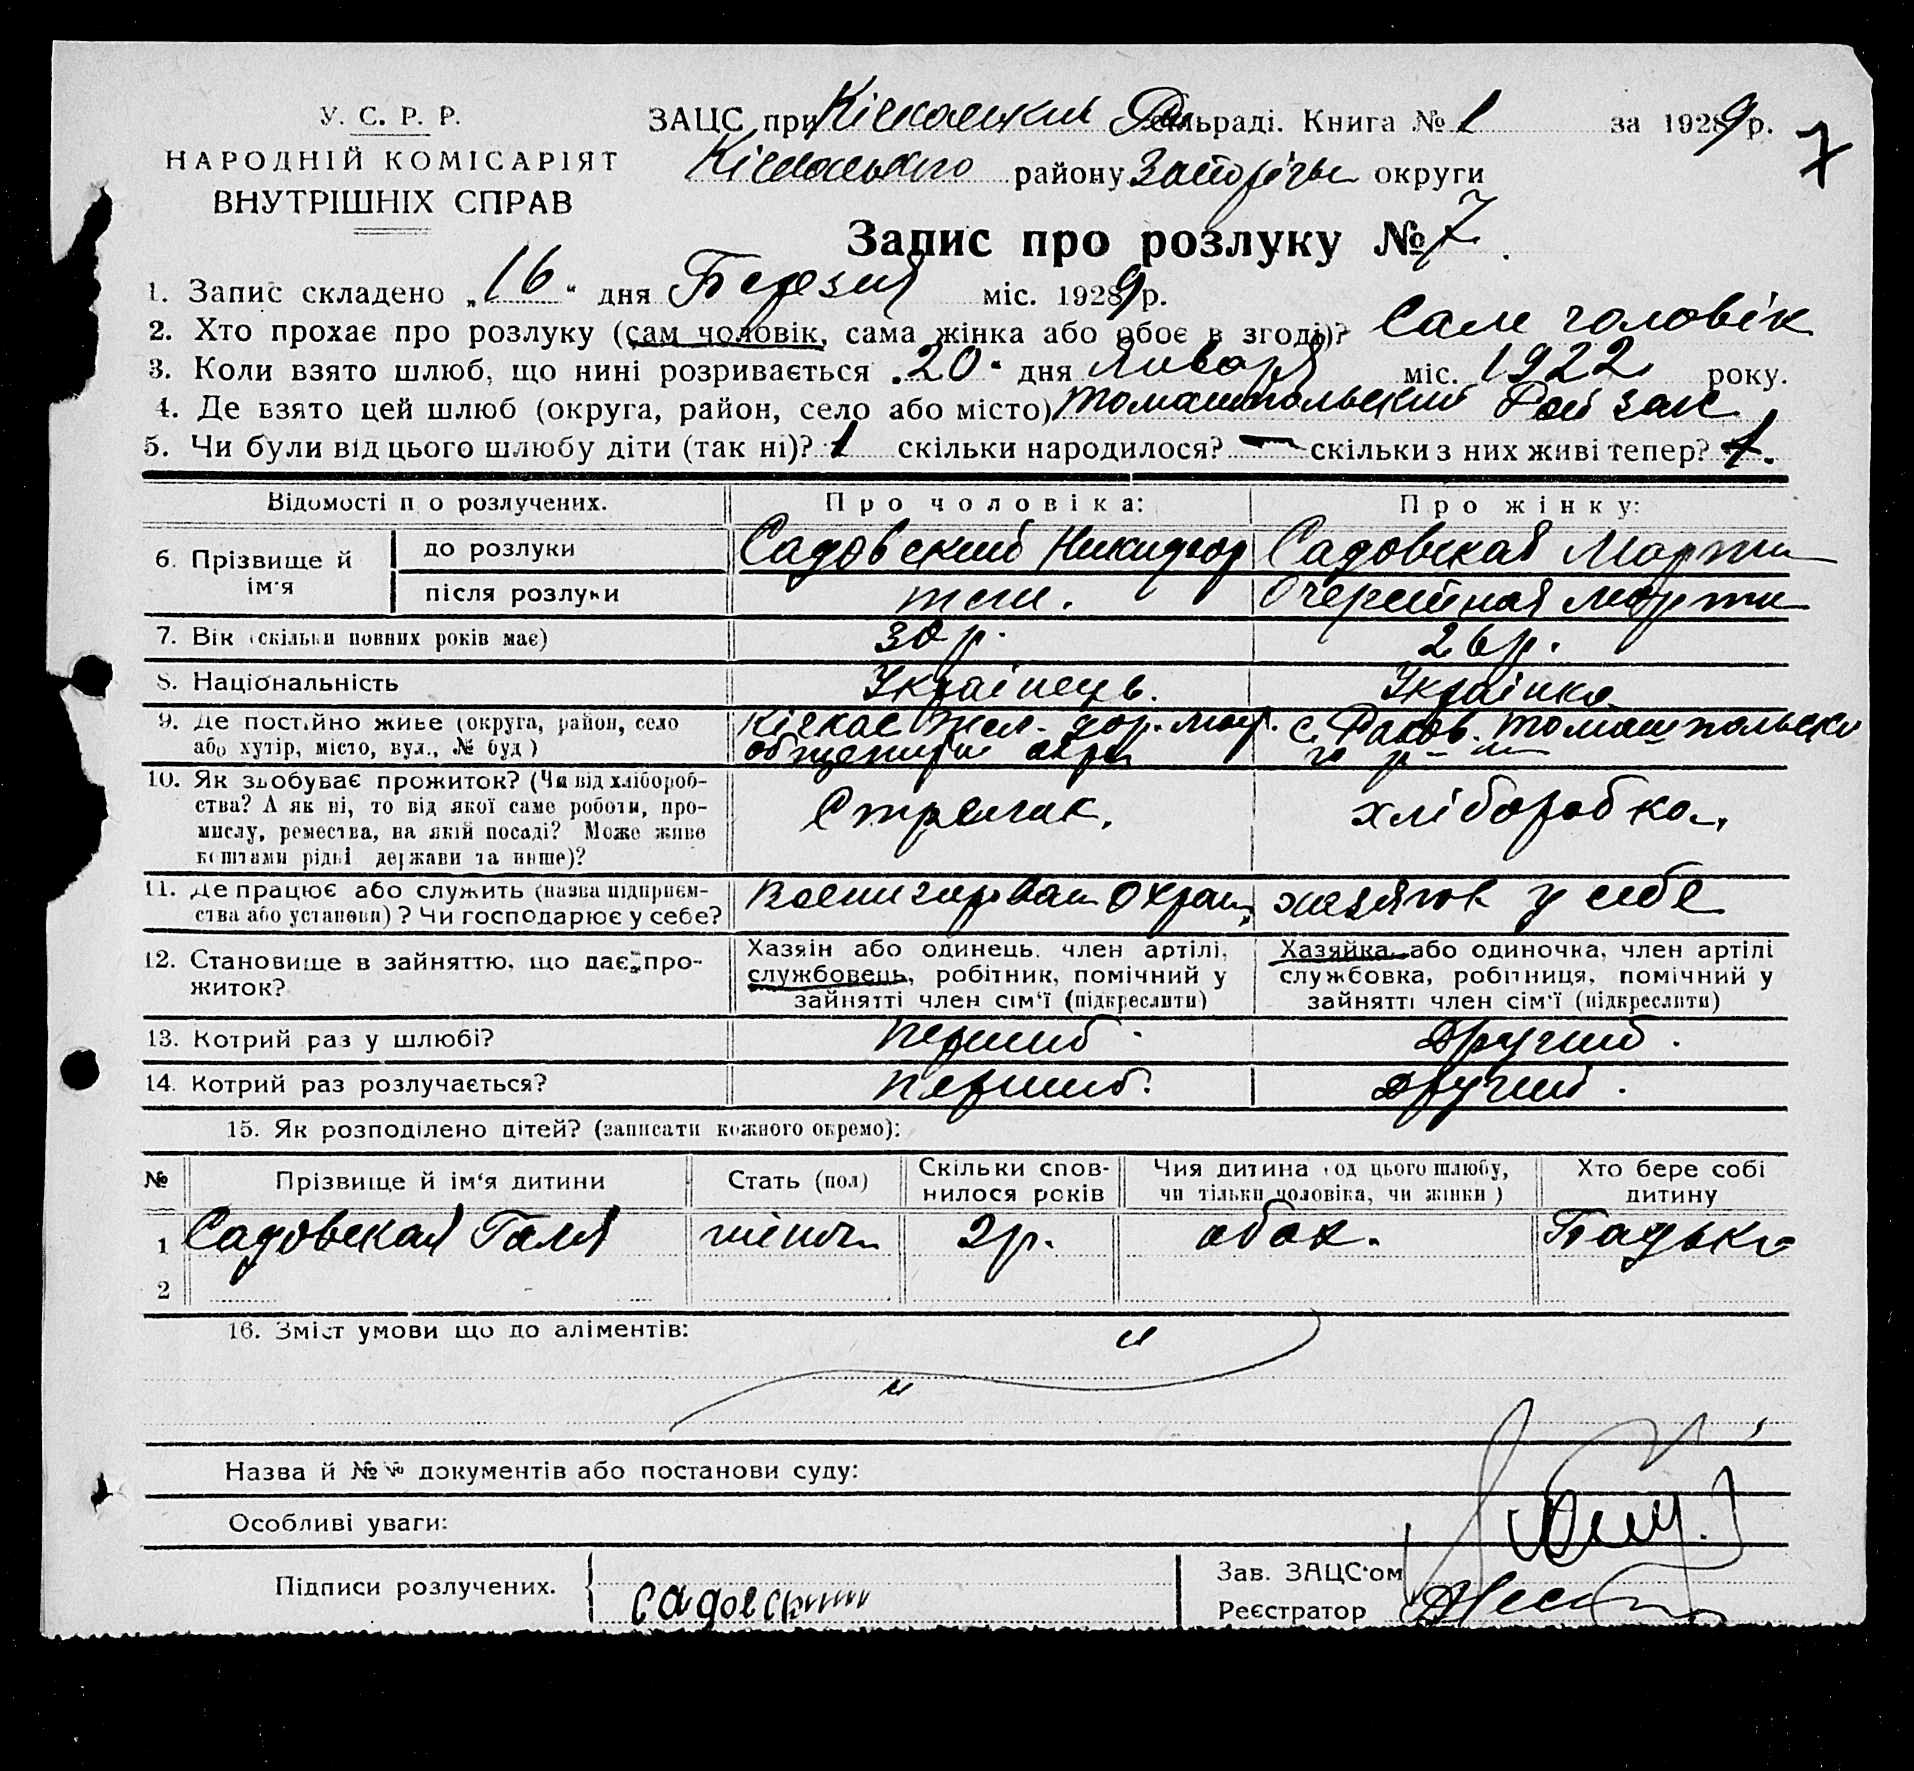 У. С. Р. Р.
НАРОДНІЙ КОМІСАРІЯТ
ВНУТРІШНІХ СПРАВ
ЗАЦС при Кічкаським сільраді. Книга № 1 за 1929 р.
7
Кічкаського району Запоріжьс округи
Запис про розлуку № 7.
1. Запис складено „16" дня Березня міс. 1929 р.
2. Хто прохає про розлуку (сам чоловік, сама жінка або обоє в згоді)? Сам чоловік
3. Коли взято шлюб, що нині розривається „20" дня Января міс. 1922 року.
4. Де взято цей шлюб (округа, район, село або місто) Томашпольский Рай загс
5. Чи були від цього шлюбу діти (так ні)? 1 скільки народилося? — скільки з них живі тепер? 1.
Відомості п о розлучених. Про чоловіка: Про жінку:
6. Прізвище й ім'я
до розлуки Садовський Никифор Садовская Марта
після розлуки теж. Очеретная Марта
7. Вік (скільки повних років має) 30 р. 26 р.
8. Національність Українець. Українка
9. Де постійно живе (округа, район, село або хутір, місто, вул., № буд) Кічкас жел. дор. мос. общежит охра с. Раков. Томашпольско го р-н
10. Як здобуває прожиток? (Чи від хлібороб-
ства? А як ні, то від якої саме роботи, про-
мислу, ремества, на якій посаді? Може живе
коштами рідні держави та инше)? Стрелок. хліборобка.
11. Де працює або служить (назва підприєм-
ства або установи)? Чи господарює у себе? Военизирован Охран, хазяюв у себе
12. Становище в зайняттю, що дає про-
житок?
Хазяін або одинець. член артілі,
службовець, робітник, помічний у
зайнятті член сім'ї (підкреслити)
Хазяйка або одиночка, член артілі
службовка, робітниця, помічний у
зайнятті член сім'ї (підкреслити)
13. Котрий раз у шлюбі? перший. другий.
14. Котрий раз розлучається? перший. другий.
15. Як розподілено дітей? (записати кожного окремо):
№ Прізвище й ім'я дитини Стать (пол) Скільки спов-нилося років Чия дитина (од цього шлюбу, чи тільки чоловіка, чи жінки) Хто бере собі дитину
1 Садовская Галя жіноч. 2 р. обох. Батько
2
16. Зміст умови що до аліментів:
Назва й №№ документів або постанови суду:
Особливі уваги:
Підписи розлучених. Садовский
Зав. ЗАЦС'ом
Реєстратор